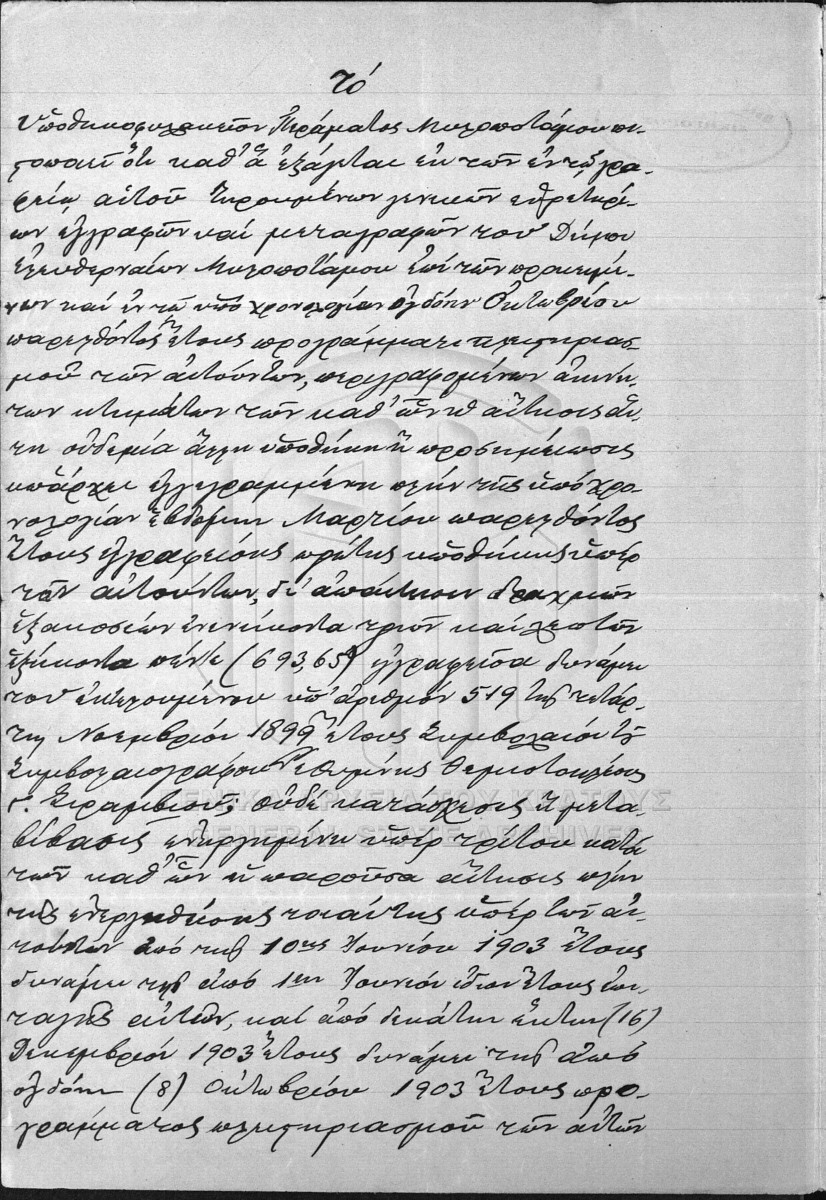 Τό
Ὑποθηκοφυλακεῖον Περάματος Μυλοποτάμου πι-
στοποιεῖ ὅτι καθ' ἅ ἐξάγεται ἐκ τῶν ἐν τῷ γρα-
φείῳ αὐτοῦ τηρουμένων γενικῶν εὑρετηρί-
ων ἐγγραφῶν καί μεταγραφῶν τοῦ Δήμου
Ἐλευθερναίων Μυλοποτάμου ἐπί τῶν προκειμέ-
νων καί ἐν τῷ ὑπό χρονολογίαν ὀγδόην Ὀκτωβρίου
παρελθόντος ἔτους προγράμματι πλειστηριασ-
μοῦ τῶν αἰτούντων, περιγραφομένων ἀκινή-
των κτημάτων τῶν καθ' ὧν ἡ αἴτησις αὕ-
τη οὐδεμία ἄλλη ὑποθήκη ἤ προσημείωσις
ὑπάρχει ἐγγεγραμμένη πλήν τῆς ὑπό χρο-
νολογίαν ἑβδόμην Μαρτίου παρελθόντος
ἔτους ἐγγραφείσης πρώτης ὑποθήκης ὑπέρ
τῶν αἰτούντων, δι' ἀπαίτησιν δραχμῶν
ἑξακοσίων ἐνενήκοντα τριῶν καί λεπτῶν
ἑξήκοντα πέντε (693,65) ἐγγραφεῖσα δυνάμει
τοῦ ἐκτελουμένου ὑπ' ἀριθμόν 519 τῆς τετάρ-
της Νοεμβρίου 1899 ἔτους Συμβολαίου τοῦ
Συμβολαιογράφου Ρεθύμνης Θεμιστοκλέους
Γ. οὐδέ κατάσχεσις ἤ μετα-
βίβασις ἐνηργημένη ὑπέρ τρίτου κατά
τῶν καθ' ὧν ἡ παροῦσα αἴτησις πλήν
τῆς ἐνεργηθείσης τοιαύτης ὑπέρ τῶν αἰ-
τούντων ἀπό τῆς 10ης Ἰουνίου 1903 ἔτους
δυνάμει τῆς ἀπό 1ην Ἰουνίου ἰδίου ἔτους ἐπι-
ταγῆς αὐτῶν, καί ἀπό δεκάτην ἕκτην (16)
Δεκεμβρίου 1903 ἔτους δυνάμει τῆς ἀπό
ὀγδόην (8) Ὀκτωβρίου 1903 ἔτους προ-
γράμματος πλειστηριασμοῦ τῶν αὐτῶν
ΓΕΝΙΚΑ ΑΡΧΕΙΑ ΤΟΥ ΚΡΑΤΟΥΣ
GENERAL STATE ARCHIVES